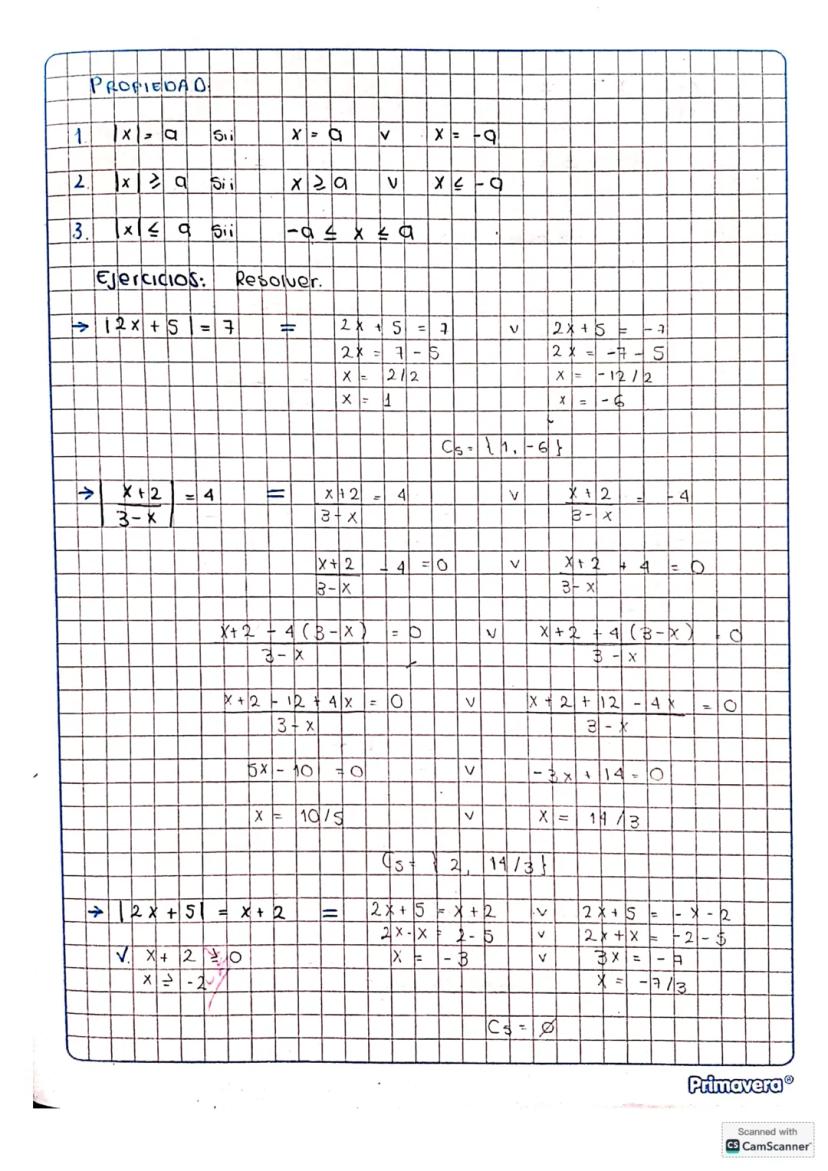 PROPIEDAD:
1. |x| = a Sii x = a v x = -a
2. |x| ≥ a Sii x ≥ a v x ≤ -a
3. |x| ≤ a Sii -a ≤ x ≤ a
Ejercicios: Resolver.
→ |2x + 5| = 7 = 2x + 5 = 7 v 2x + 5 = -7
2x = 7 - 5 2x = -7 - 5
x = 2/2 x = -12/2
x = 1 x = -6
Cs = {1, -6}
→ |x+2 / 3-x| = 4 = x+2 / 3-x = 4 v x+2 / 3-x = -4
x+2 / 3-x - 4 = 0 v x+2 / 3-x + 4 = 0
x+2 - 4(3-x) / 3-x = 0 v x+2 + 4(3-x) / 3-x = 0
x+2 - 12 + 4x / 3-x = 0 v x+2 + 12 - 4x / 3-x = 0
5x - 10 = 0 v -3x + 14 = 0
x = 10/5 v x = 14/3
Cs = {2, 14/3}
→ |2x + 5| = x + 2 = 2x + 5 = x + 2 v 2x + 5 = -x - 2
2x - x = 2 - 5 v 2x + x = -2 - 5
V. x + 2 ≥ 0 x = -3 v 3x = -7
x ≥ -2 x = -7/3
Cs = ∅
Primavera®
Scanned with
CS CamScanner